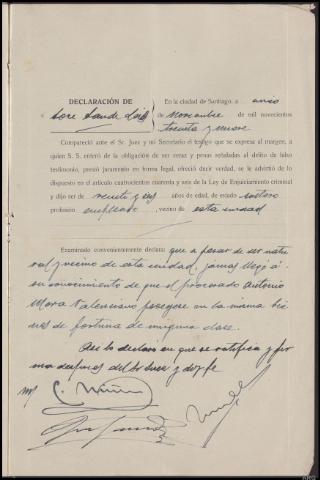 DECLARACIÓN DE
Jose Lande
En la ciudad de Santiago, a once
de Noviembre de mil novecientos
treinta y nueve
Compareció ante el Sr. Juez y mi Secretario el testigo que se expresa al margen, a
quien S. S. enteró de la obligación de ser veraz y penas señaladas al delito de falso
testimonio, prestó juramento en forma legal, ofreció decir verdad, se le advertió de lo
dispuesto en el artículo cuatrocientos cuarenta y seis de la Ley de Enjuiciamiento criminal
y dijo ser de veinti y seis años de edad, de estado soltero
profesión empleado, vecino de esta ciudad
Examinado convenientemente declara: que a pesar de ser natu
ral y vecino de esta ciudad, jamas llegó a
su conocimiento de que el procesado Antonio
Mora Valenciano poseyese en la misma bie
nes de fortuna de ninguna clase.
Asi lo declaró en que se ratifica y fir
ma despues del Sr Juez y doy fe